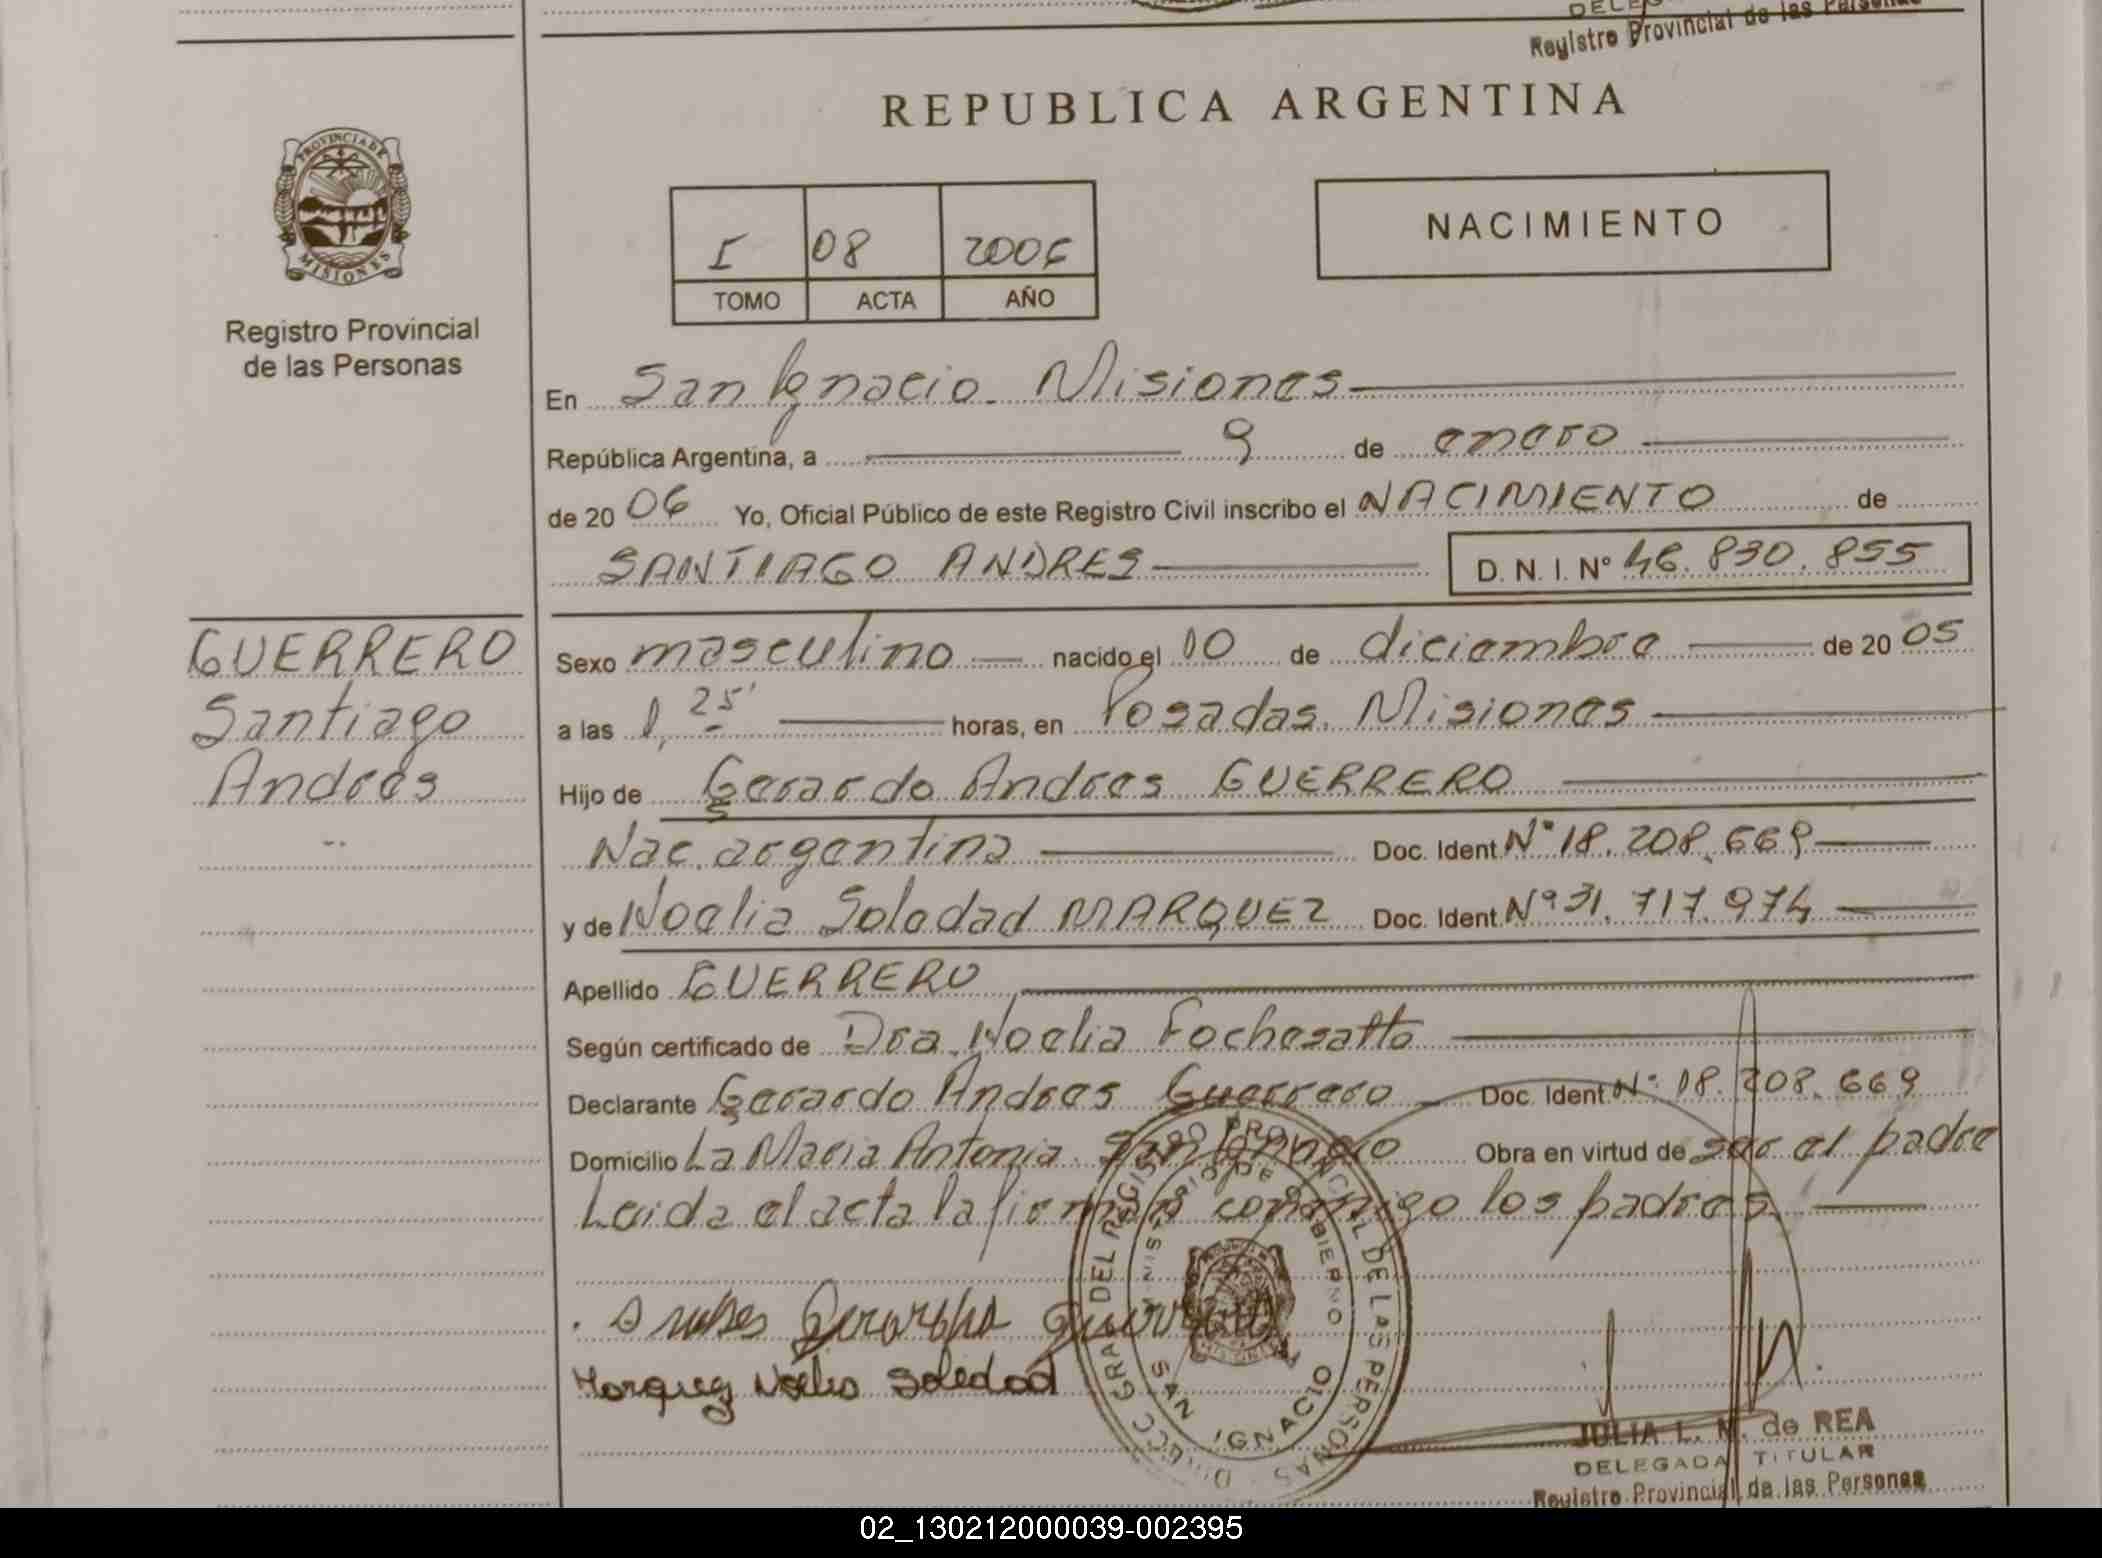 Registro Provincial de las Personas
REPUBLICA ARGENTINA
PROVINCIA DE
MISIONES
Registro Provincial
de las Personas
I 08 2006
TOMO ACTA AÑO
NACIMIENTO
En San Ignacio. Misiones
República Argentina, a 9 de enero
de 2006 Yo, Oficial Público de este Registro Civil inscribo el NACIMIENTO de
SANTIAGO ANDRES D. N. I. Nº 46.830.855
GUERRERO
Santiago
Andres
Sexo masculino nacido el 10 de diciembre de 2005
a las 1,25' horas, en Posadas. Misiones
Hijo de Gerardo Andres GUERRERO
Nac. argentina Doc. Ident. Nº 18.208.669
y de Noelia Soledad MARQUEZ Doc. Ident. Nº 31.717.974
Apellido GUERRERO
Según certificado de Dra. Noelia Fochesatto
Declarante Gerardo Andres Guerrero Doc. Ident. Nº 18.208.669
Domicilio La Maria Antonia. San Ignacio Obra en virtud de ser el padre
Leida el acta la firman conmigo los padres.
Marquez Noelia Soledad
DIRECC GRAL DEL REGISTRO PROVINCIAL DE LAS PERSONAS
MINISTERIO DE GOBIERNO
SAN IGNACIO
JULIA L. M. de REA
DELEGADA TITULAR
Registro Provincial de las Personas
02_130212000039-002395